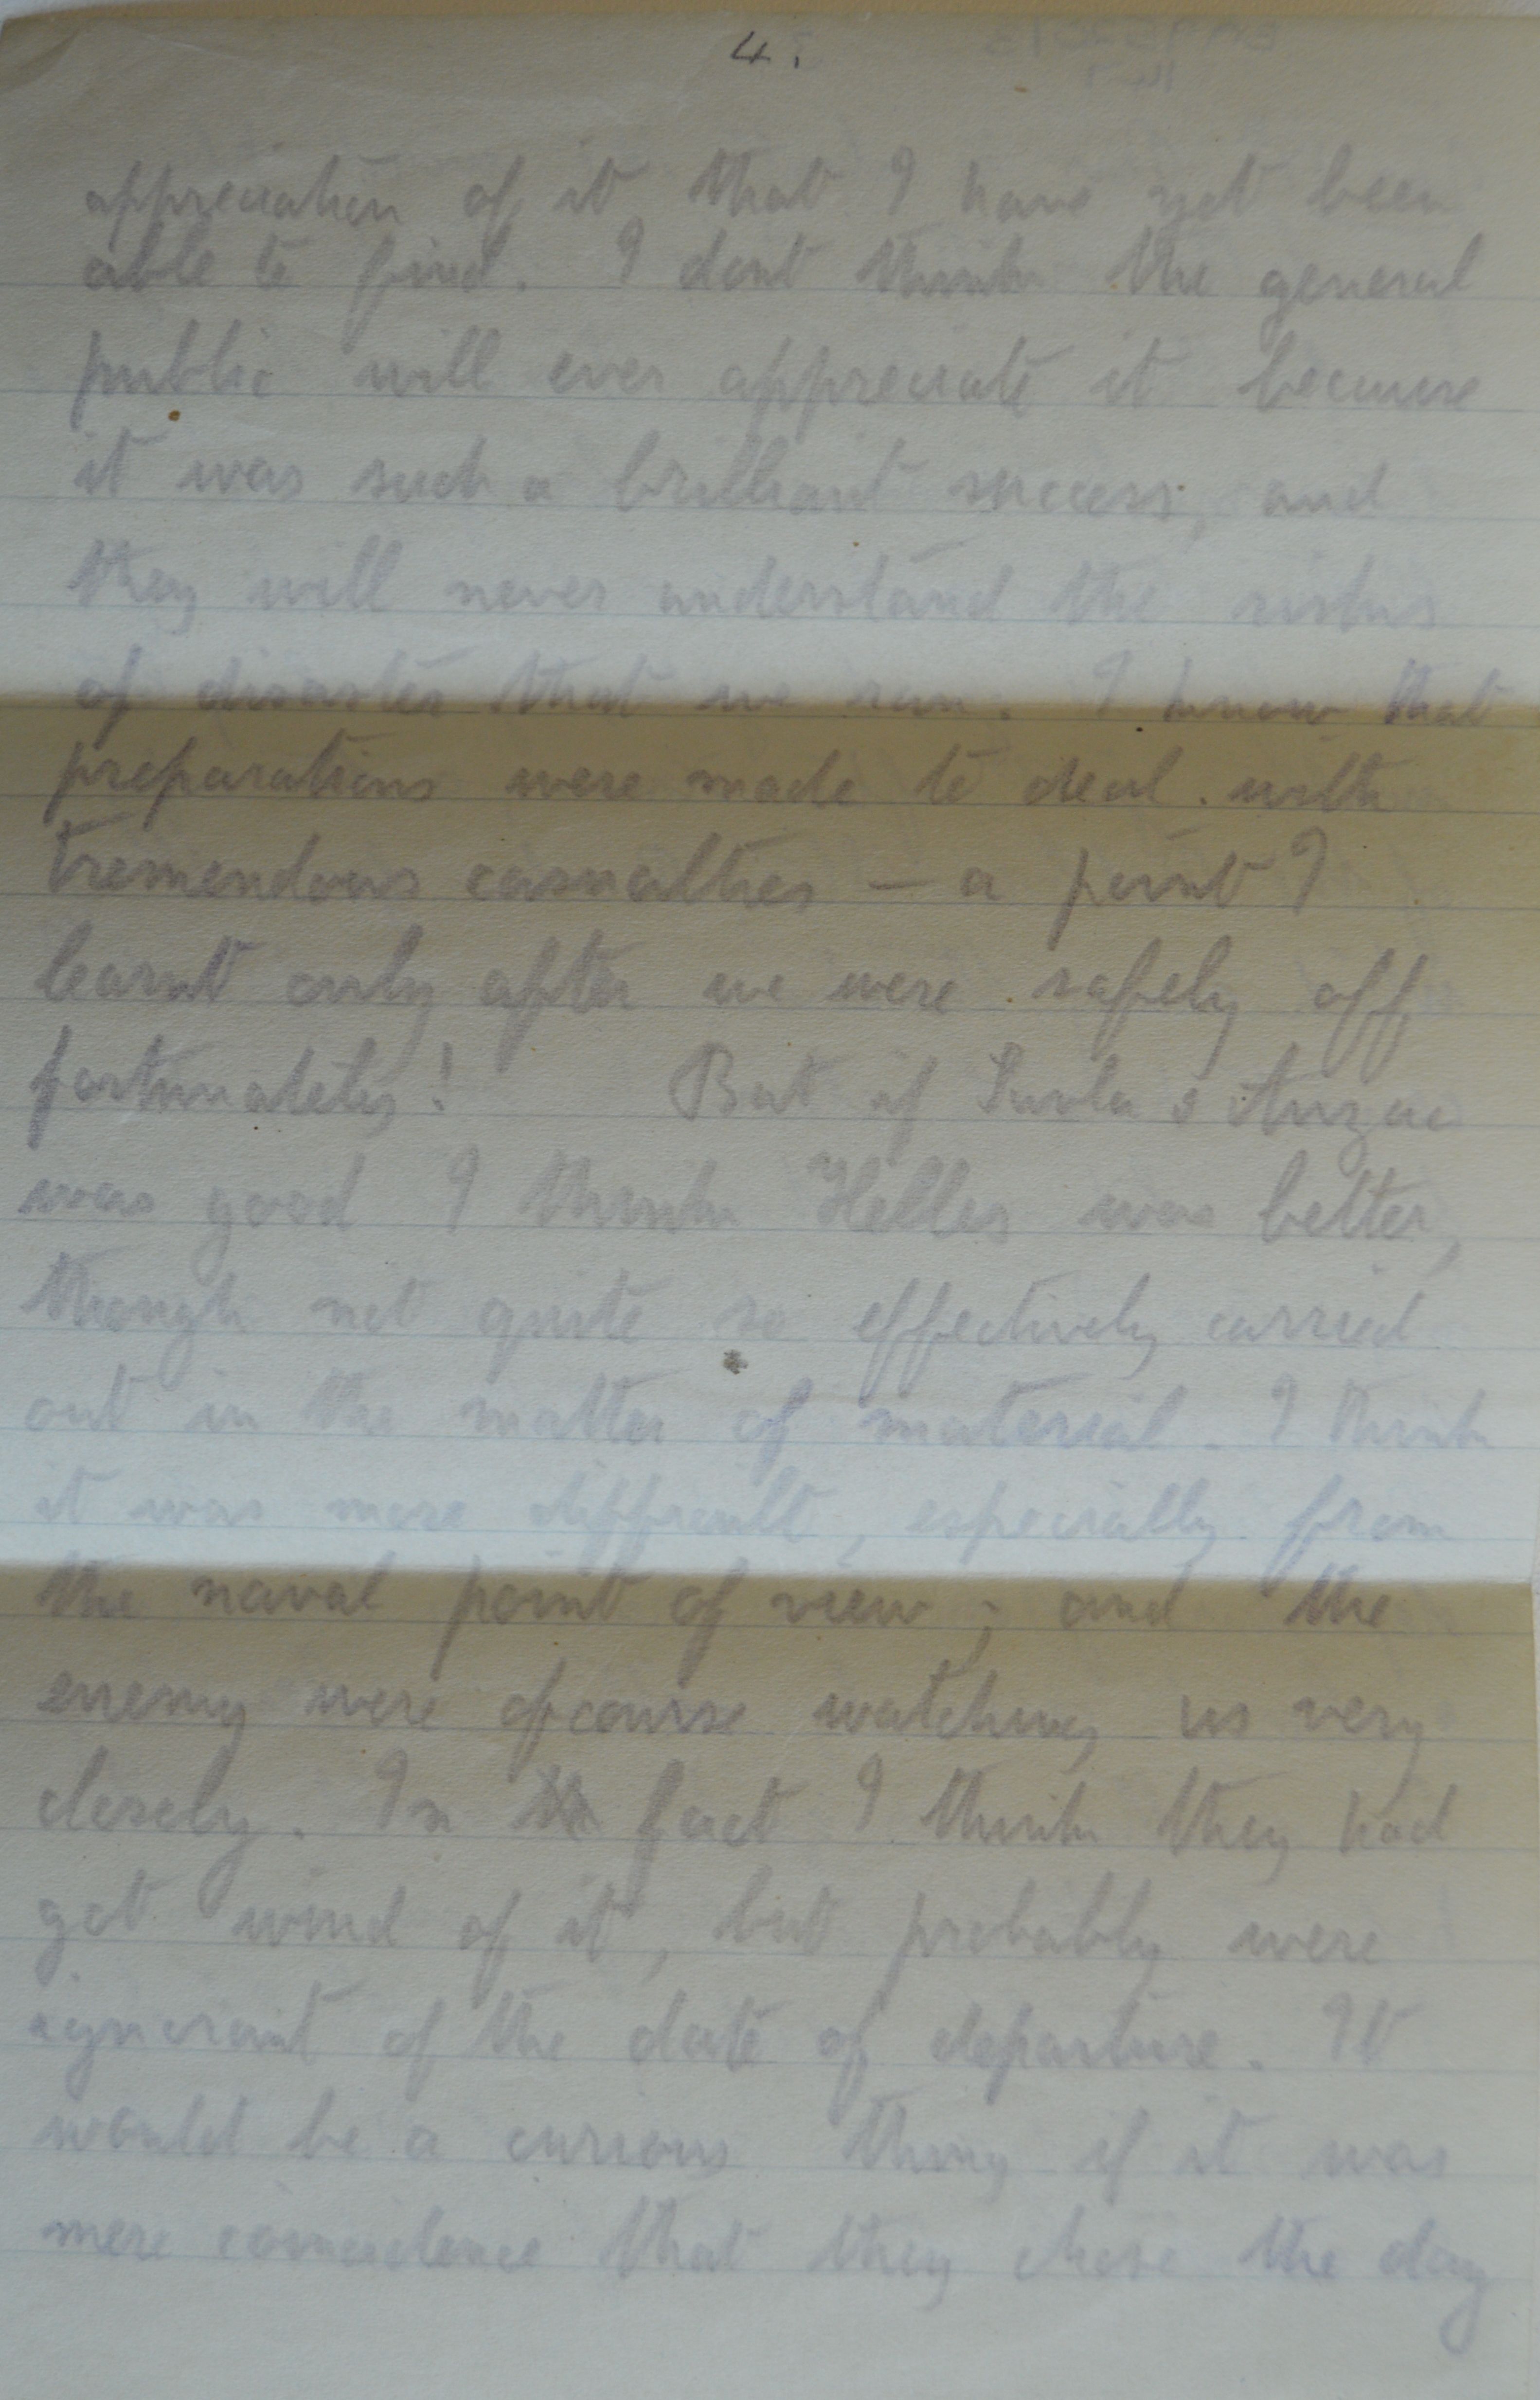 4.
appreciation of it that I have yet been
able to find. I dont think the general
public will ever appreciate it because
it was such a brilliant success, and
they will never understand the risks
of disaster that we ran. I know that
preparations were made to deal with
tremendous casualties — a point I
learnt only after we were safely off,
fortunately! But if Suvla & Anzac
was good I think Helles was better,
though not quite so effectively carried
out in the matter of material. I think
it was more difficult, especially from
the naval point of view; and the
enemy were ofcourse watching us very
closely. In fact I think they had
got wind of it, but probably were
ignorant of the date of departure. It
would be a curious thing if it was
mere coincidence that they chose the day